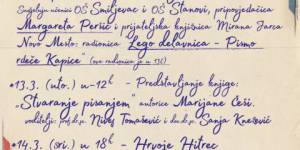 Sudjeluju učenici OŠ Smiljevac i OŠ Stanovi, pripovjedačica
Margareta Peršić i prijateljska knjižnica Mirana Jarca
Novo Mesto: radionica Lego delavnica - Pismo
rdeče Kapice (ove radionice je u 13h)
•13.3. (uto.) u 12h - Predstavljanje knjige:
„Stvaranje pisanjem" autorice Marijane Češi,
voditelji: prof.dr.sc. Nives Tomašević i doc.dr.sc. Sanja Knežević
•14.3. (sri.) u 18h - Hrvoje Hitrec